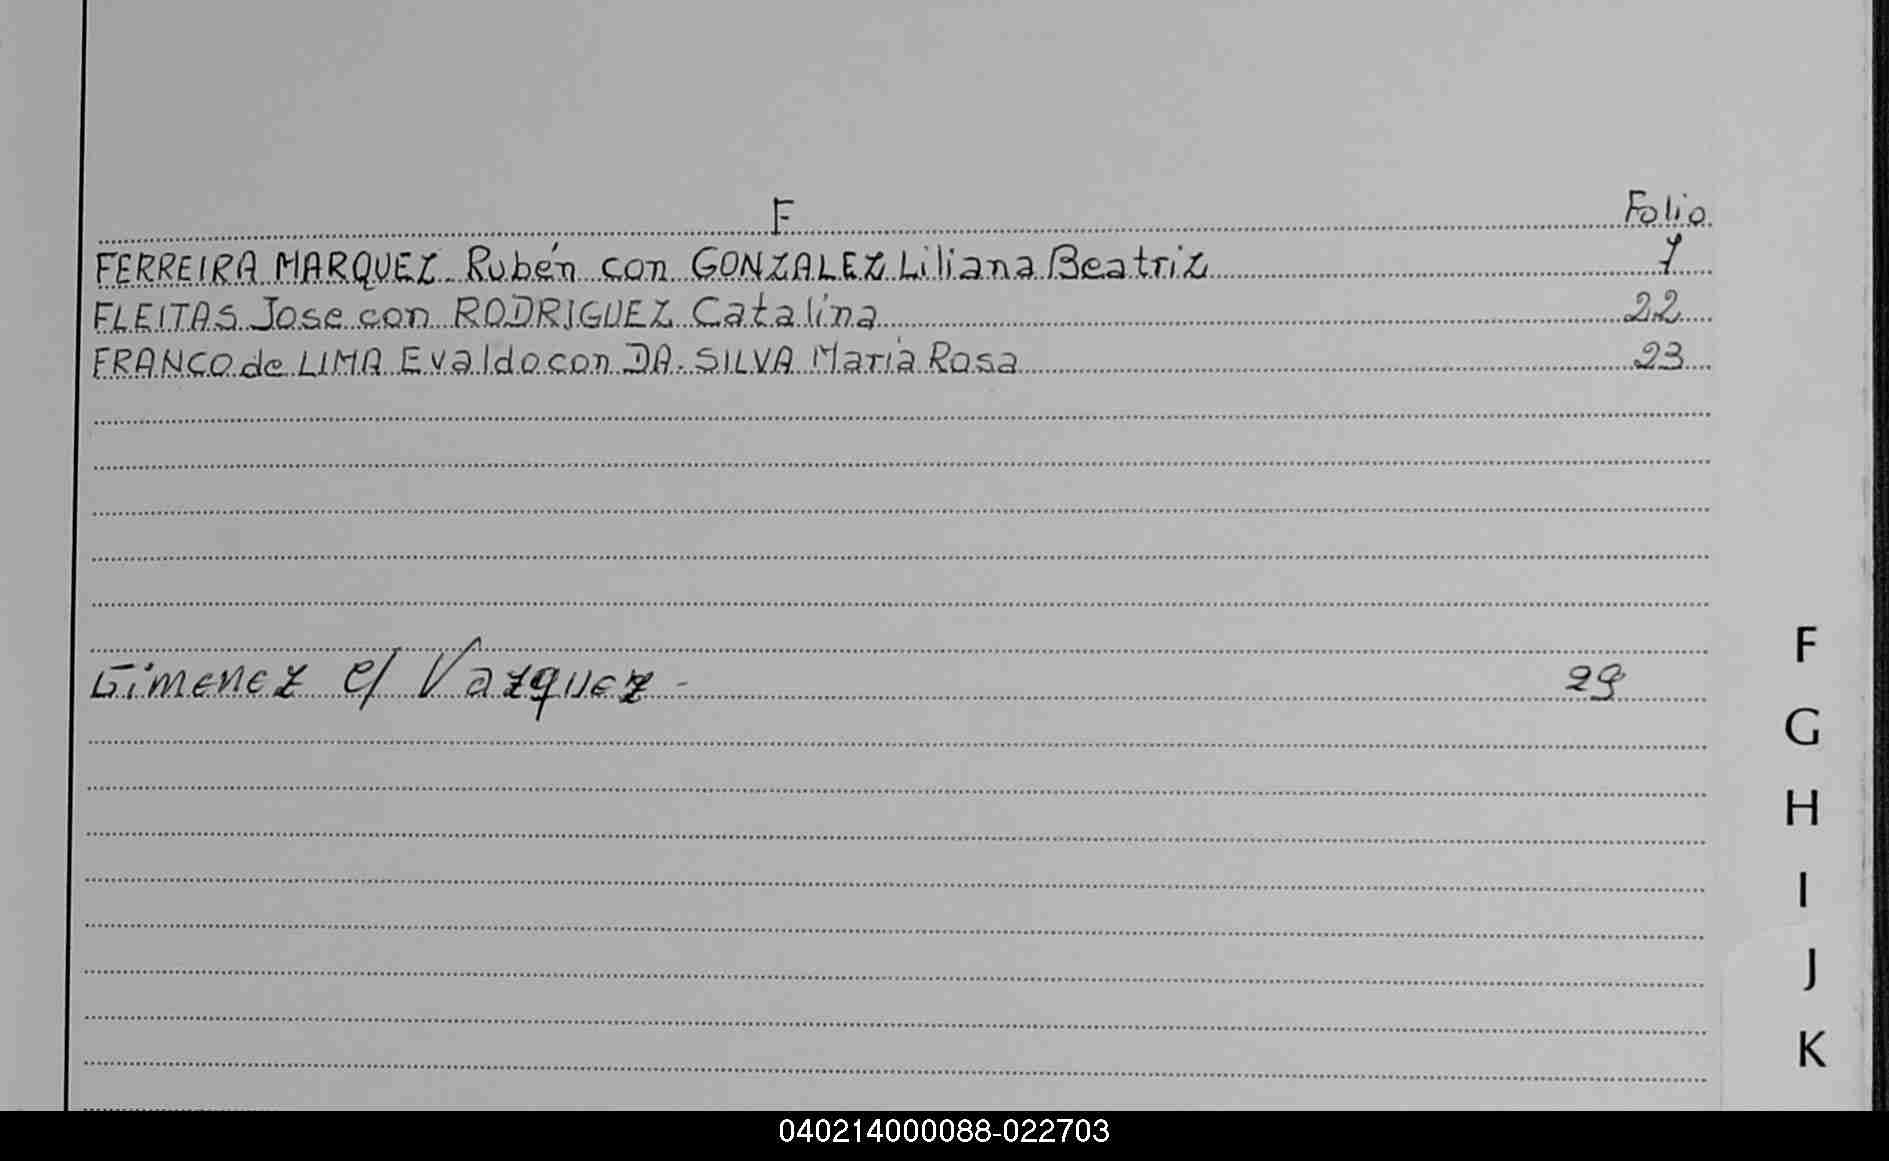 F Folio
FERREIRA MARQUEZ Rubén con GONZALEZ Liliana Beatriz 7
FLEITAS Jose con RODRIGUEZ Catalina 22
FRANCO de LIMA Evaldo con DA. SILVA María Rosa 23
Gimenez c/ Vazquez - 29
F
G
H
I
J
K
040214000088-022703